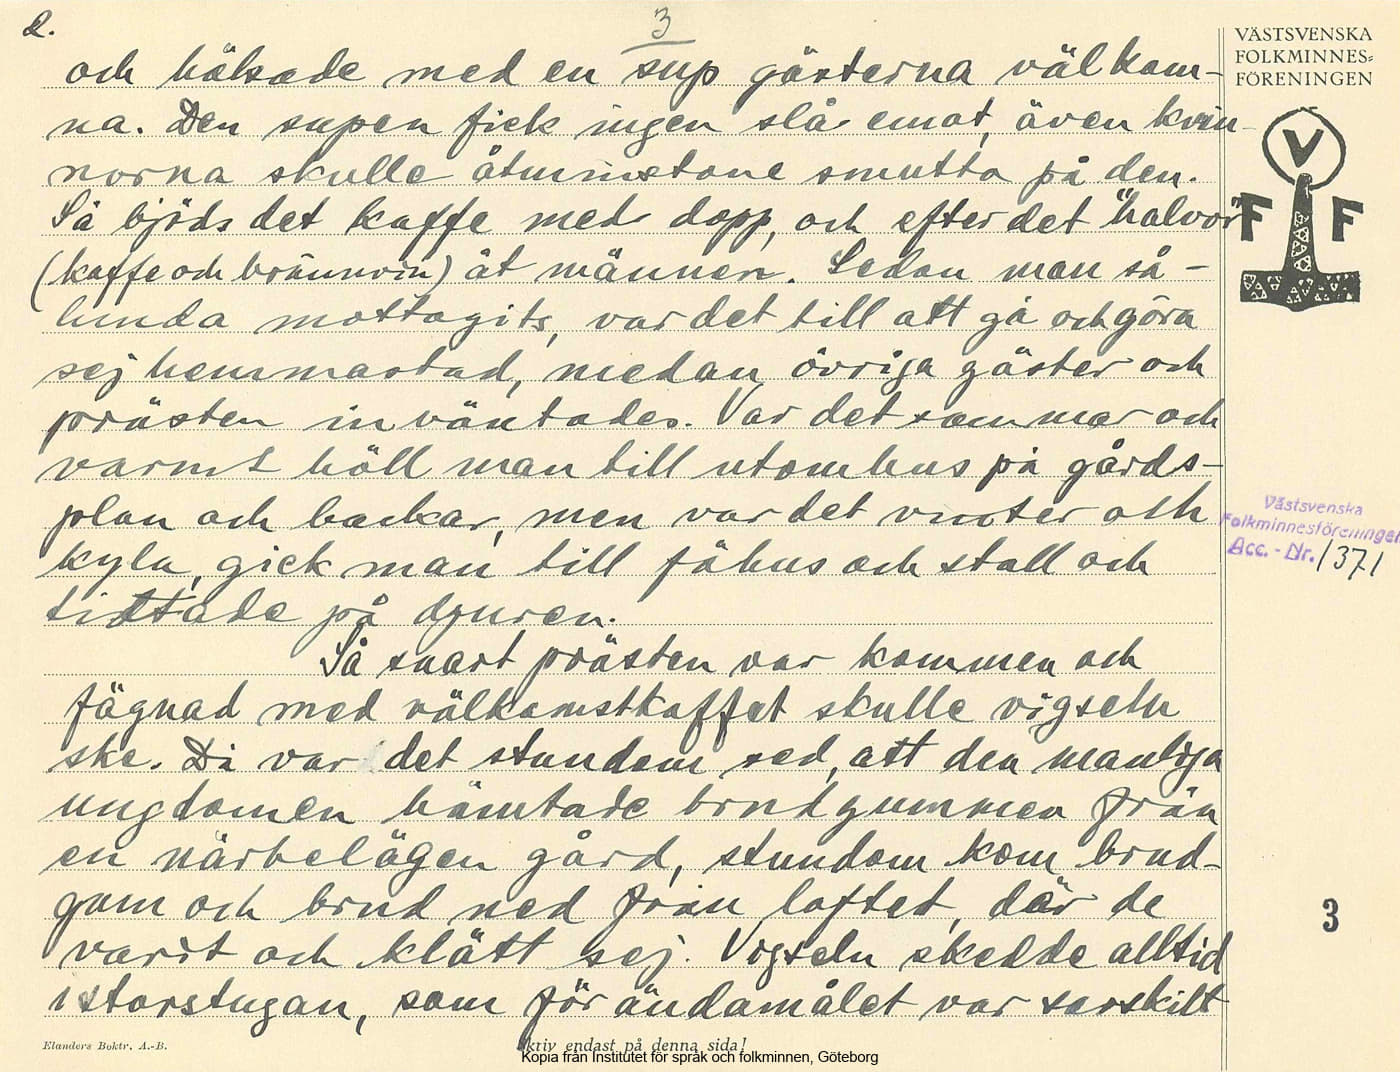 2.
3
och hälsade med en sup gästerna välkom-
na. Den supen fick ingen slå emot, även kvin-
norna skulle åtminstone smutta på den.
Så bjöds det kaffe med dopp, och efter det "halvor"
(kaffe och brännvin) åt männen. Sedan man så-
lunda mottagits, var det till att gå och göra
sej hemmastad, medan övriga gäster och
prästen inväntades. Var det sommar och
varmt höll man till utomhus på gårds-
plan och backar, men var det vinter och
kyla, gick man till fähus och stall och
tidttade på djuren.
Så snart prästen var kommen och
fägnad med välkomstkaffet skulle vigseln
ske. Då var det stundom sed, att den manliga
ungdomen hämtade brudgummen från
en närbelägen gård, stundom kom brud-
gum och brud ned från loftet, där de
varit och klätt sej. Vigseln skedde alltid
i storstugan, som för ändamålet var särskilt
VÄSTSVENSKA
FOLKMINNES-
FÖRENINGEN
V
F F
Västsvenska
Folkminnesföreningen
Acc. - Nr. 1371
3
Elanders Boktr. A.-B.
Skriv endast på denna sida!
Kopia från Institutet för språk och folkminnen, Göteborg